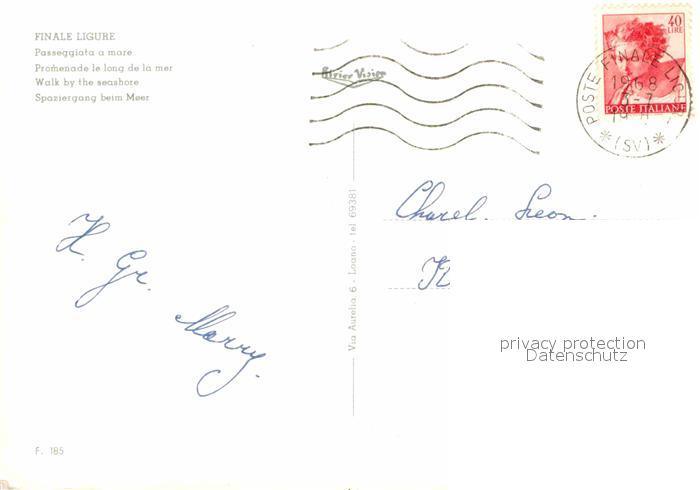 FINALE LIGURE
Passeggiata a mare
Promenade le long de la mer
Walk by the seashore
Spaziergang beim Meer
40
LIRE
POSTE ITALIANE
POSTE FINALE LIGURE
1968
(SV)
Via Aurelia 6 - Loano - tel 69381
H. Gr.
Charel. Leon.
privacy protection
Datenschutz
F. 185